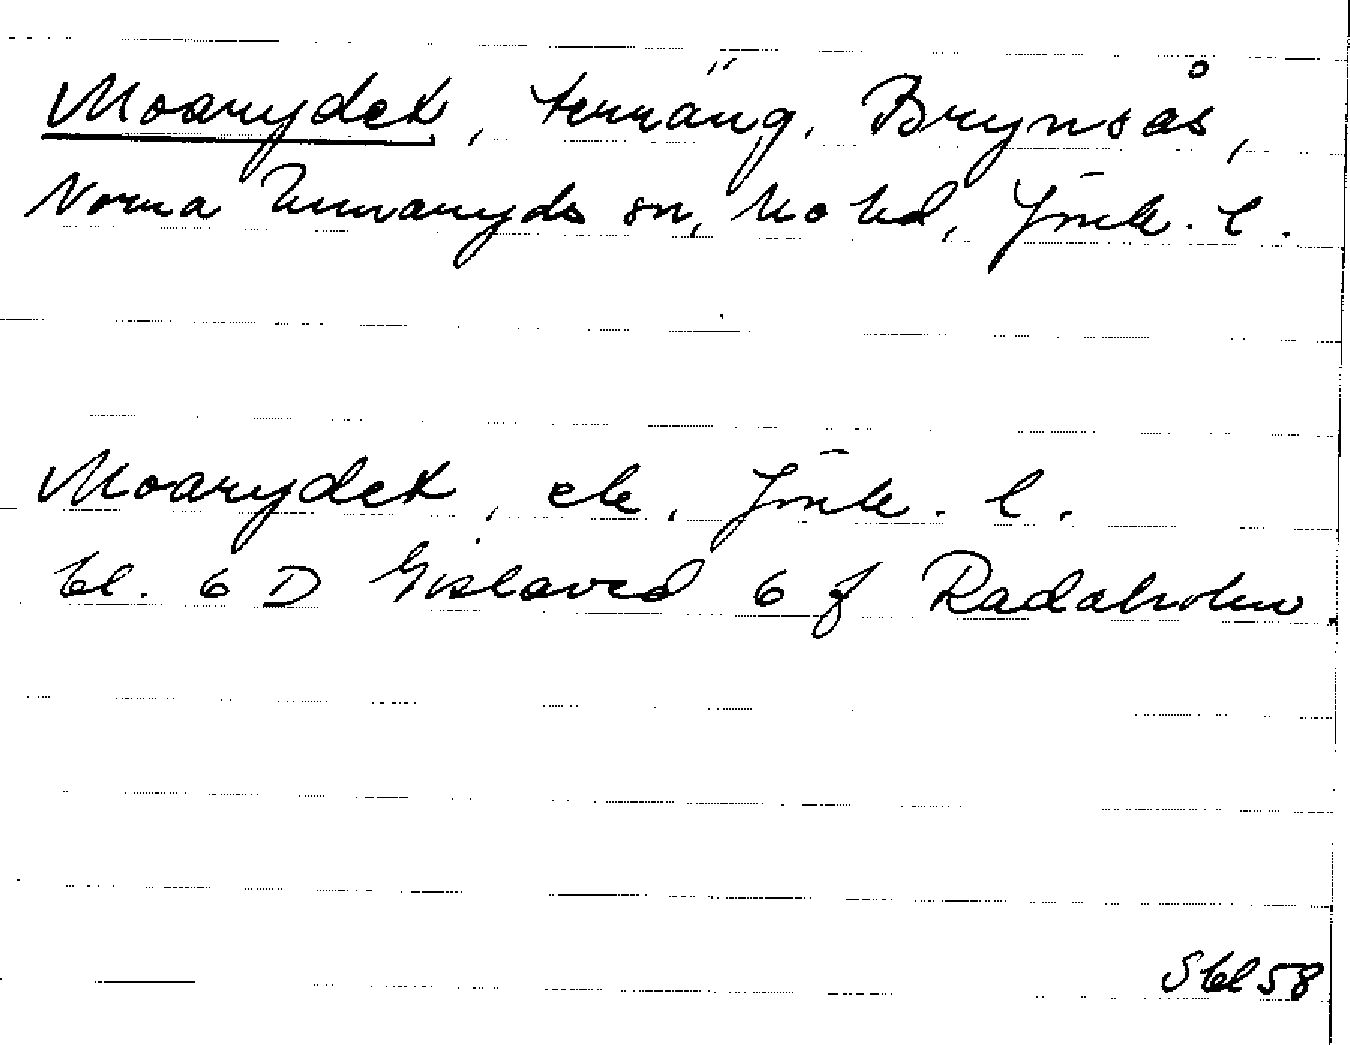 Moarydet, terräng, Brynsås,
Norra Unnaryds sn, Mo hd, Jönk. l.
Moarydet, ek, Jönk. l.
bl. 6 D Gislaved 6 f Radaholm
Sbl 58